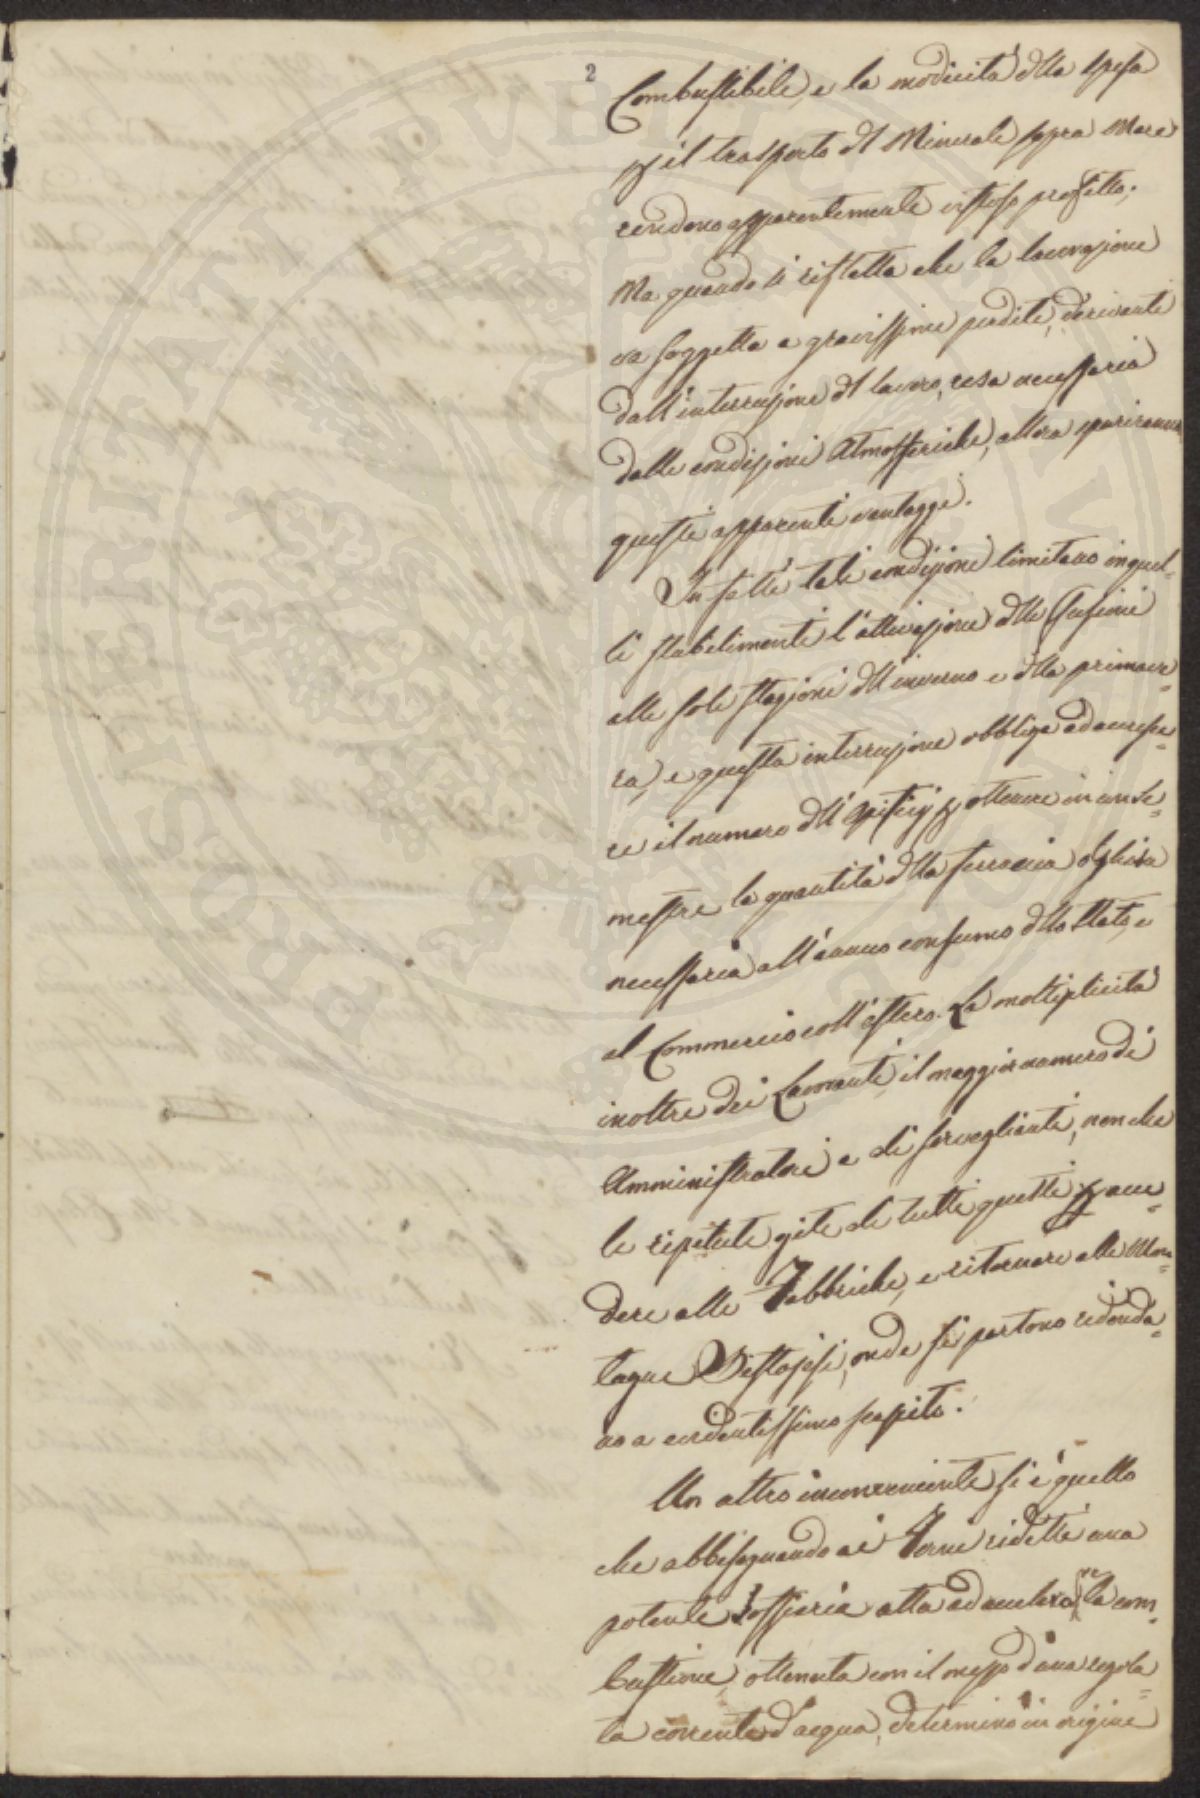 2
Combustibile, e la modicità dlla spesa
p il trasporto dl Minerale sopra Mare
rendono apparentemente vistoso profitto;
Ma quando si rifletta che la lavorazione
va soggetta a gravissime perdite, derivanti
dall'interruzione dl lavoro, resa necessaria
dalle condizioni Atmosferiche, allora spariranno
questi apparenti vantaggi.
In fatti tali condizioni limitano in quel-
li stabilimenti l'attivazione dlle Fusioni
alle sole stagioni dll'inverno e dlla primave=
ra, e questa interruzione obbliga ad accresce=
re il numero dll'Opificj p ottenere in un Se=
mestre la quantità dlla ferraccia o ghisa
necessaria all'annuo consumo dllo Stato, e
al Commercio coll'estero. La moltiplicità
inoltre dei Lavoranti, il maggior numero di
Amministratori e di sorveglianti, non che
le ripetute gite di tutti questi p acce=
dere alle Fabbriche, e ritornare alle Mon=
tagne Pistojesi, onde si partono ridonda=
no a evidentissimo scapito.
Un altro inconveniente si è quello
che abbisognando ai Forni ridetti una
potente soffieria atta ad accelerare la com=
bustione, ottenuta con il mezzo d'una regola=
ta corrente d'acqua, determinò in origine
PROSPERITATI PVBLICAE